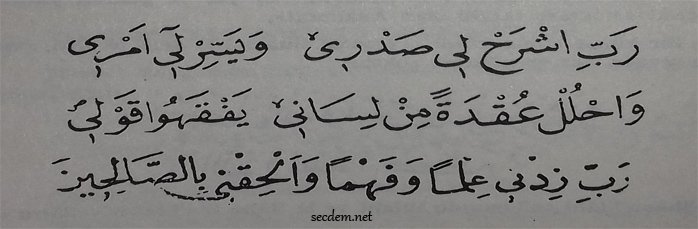 رَبِّ اشْرَحْ لِي صَدْرِي وَيَسِّرْ لِي اَمْرِي
وَاحْلُلْ عُقْدَةً مِنْ لِسَانِي يَفْقَهُوا قَوْلِي
رَبِّ زِدْنِي عِلْمًا وَفَهْمًا وَاَلْحِقْنِي بِالصَّالِحِينَ
secdem.net